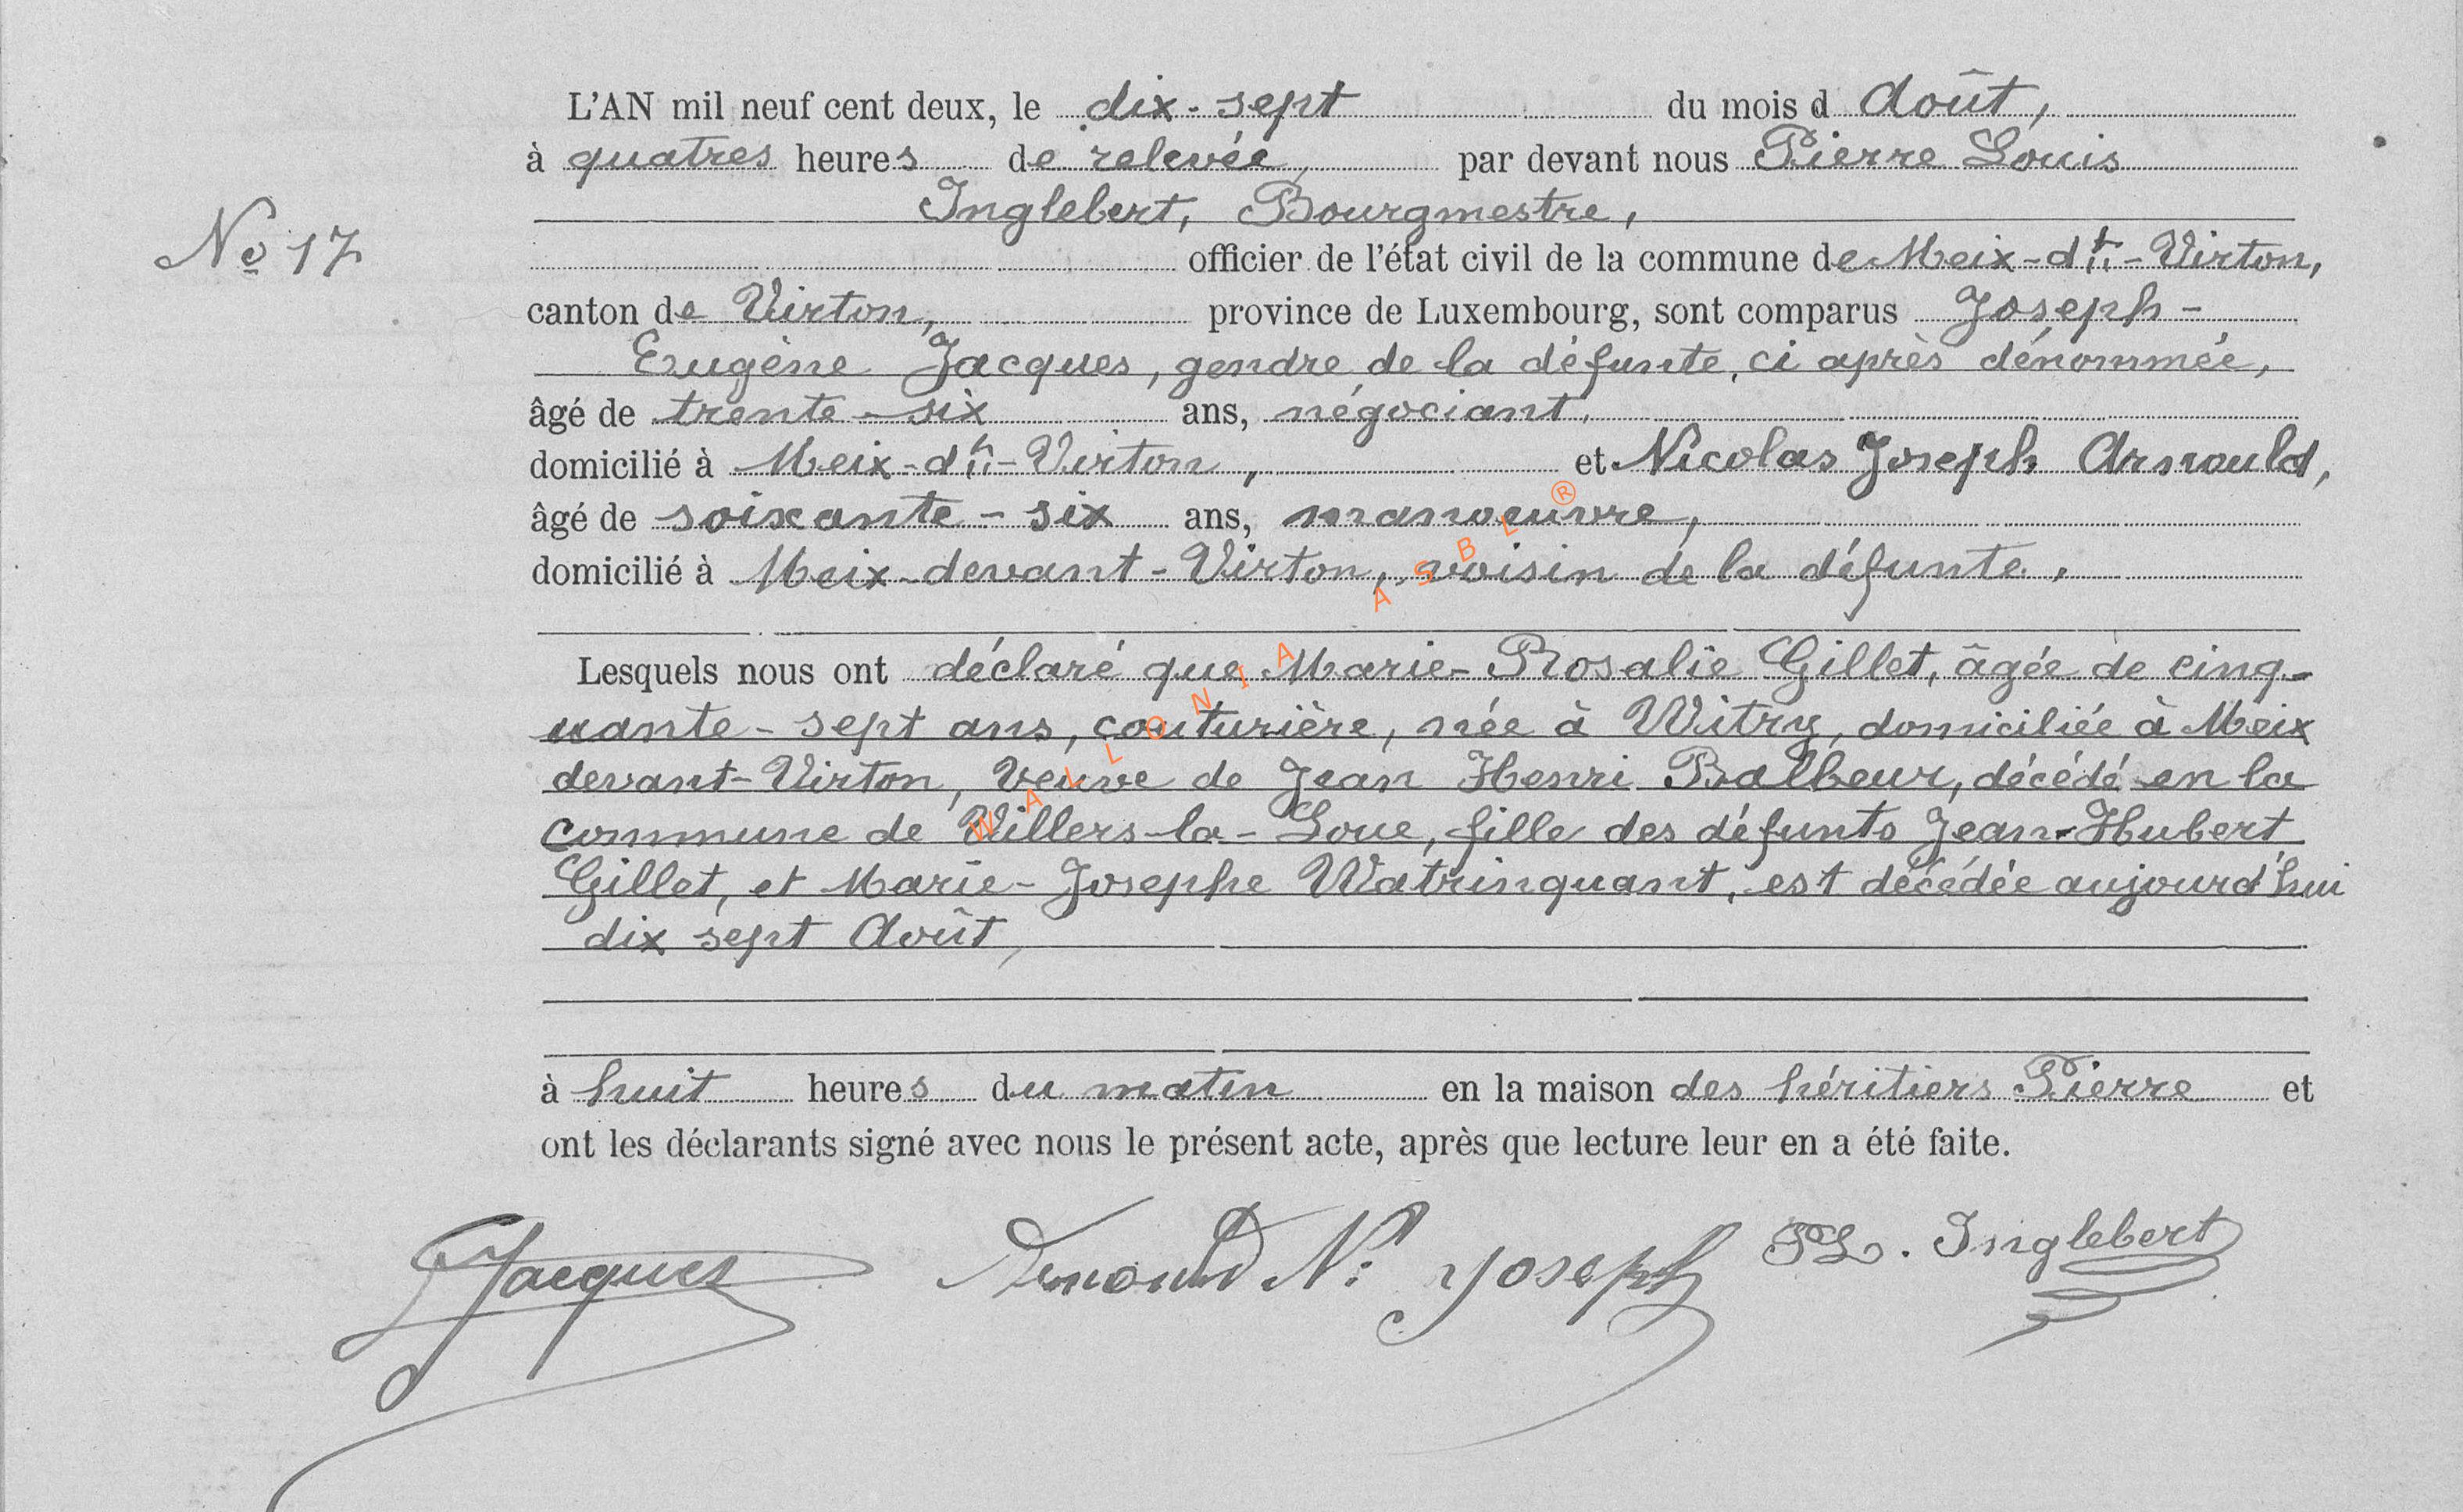 L'AN mil neuf cent deux, le dix-sept du mois d Août,
à quatres heures de relevée, par devant nous Pierre Louis
Inglebert, Bourgmestre,
No 17
officier de l'état civil de la commune de Meix-dt-Virton,
canton de Virton, province de Luxembourg, sont comparus Joseph-
Eugène Jacques, gendre de la défunte, ci après dénommée,
âgé de trente-six ans, négociant,
domicilié à Meix-dt-Virton, et Nicolas Joseph Arnould,
âgé de soixante-six ans, manoeuvre,
domicilié à Meix-devant-Virton, voisin de la défunte.
Lesquels nous ont déclaré que Marie-Rosalie Gillet, âgée de cinq-
uante-sept ans, couturière, née à Witry, domiciliée à Meix
devant-Virton, veuve de Jean Henri Balbeur, décédé en la
commune de Villers-la-Loue, fille des défunts Jean-Hubert
Gillet, et Marie-Josephe Watrinquant, est décédée aujourd'hui
dix sept Août,
à huit heures du matin en la maison des héritiers Pierre et
ont les déclarants signé avec nous le présent acte, après que lecture leur en a été faite.
Jacques Arnould N: Joseph PL. Inglebert
WALLONIA ASBL ®